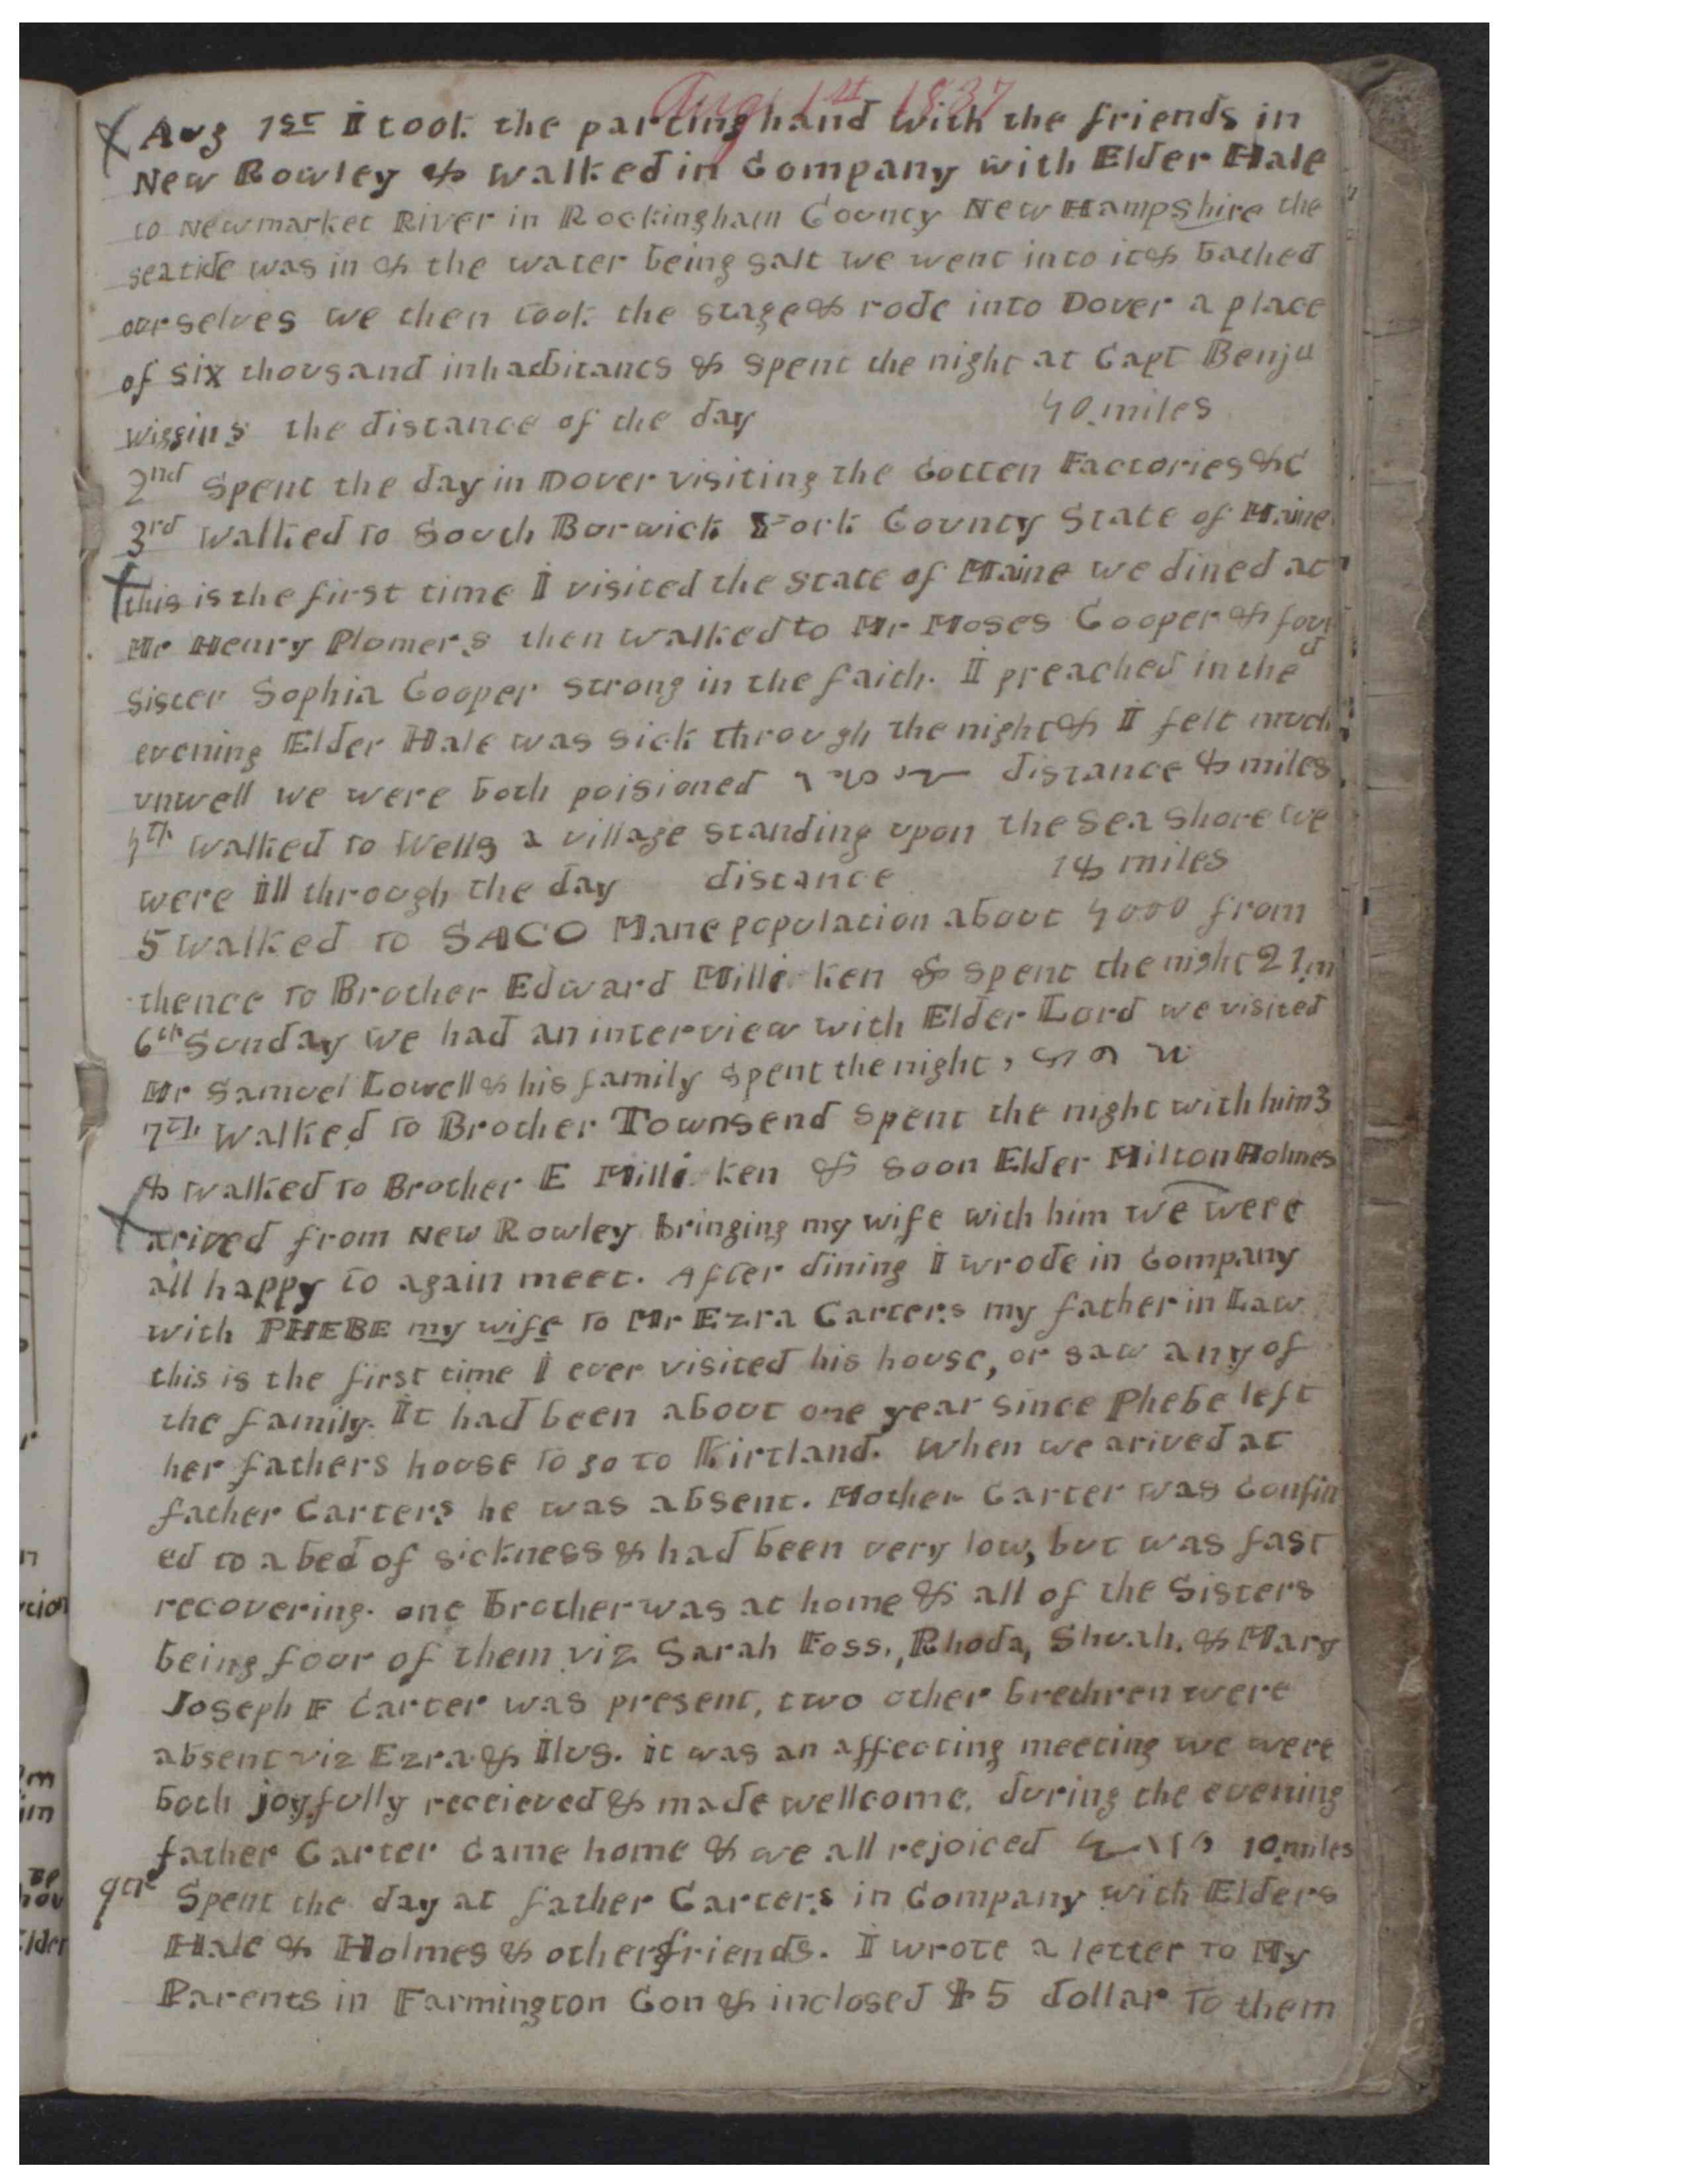 Aug 1st 1837
Aug 1st I took the parting hand with the friends in
New Rowley & walked in Company with Elder Hale
to Newmarket River in Rockingham County New Hampshire the
sea tide was in & the water being salt we went into it & bathed
ourselves we then took the stage & rode into Dover a place
of six thousand inhabitants & spent the night at Capt Benja
wiggins the distance of the day 40 miles
2nd Spent the day in Dover visiting the Cotten Factories &c
3rd walked to South Borwick York County State of Maine
this is the first time I visited the state of Maine we dined at
Mr Henry Plomers then walked to Mr Moses Cooper & found
sister Sophia Cooper strong in the faith. I preached in the
evening Elder Hale was sick through the night & I felt much
unwell we were both poisioned distance 8 miles
4th walked to Wells a village standing upon the sea shore we
were ill through the day distance 18 miles
5 walked to SACO Mane population about 4000 from
thence to Brother Edward Milliken & spent the night 21 m
6th Sunday we had an interview with Elder Lord we visited
Mr Samuel Lowell & his family spent the night
7th Walked to Brother Townsend spent the night with him 3
8 walked to Brother E Milliken & soon Elder Milton Holmes
arived from New Rowley bringing my wife with him we were
all happy to again meet. After dining I wrode in Company
with PHEBE my wife to Mr Ezra Carters my father in Law
this is the first time I ever visited his house, or saw any of
the family. It had been about one year since Phebe left
her fathers house to go to Kirtland. When we arived at
father Carters he was absent. Mother Carter was Confin
ed to a bed of sickness & had been very low, but was fast
recovering. one brother was at home & all of the Sisters
being four of them viz Sarah Foss, Rhoda, Shuah, & Mary
Joseph F Carter was present, two other brethren were
absent viz Ezra & Ilus. it was an affecting meeting we were
both joyfully receieved & made wellcome. during the evening
father Carter Came home & we all rejoiced 10 miles
9th Spent the day at father Carters in Company with Elders
Hale & Holmes & other friends. I wrote a letter to My
Parents in Farmington Con & inclosed $5 dollar to them